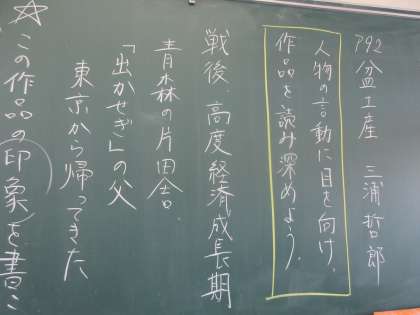 P92 盆土産 三浦哲郎
人物の言動に目を向け、
作品を読み深めよう。
戦後、高度経済成長期
青森の片田舎、
「出かせぎ」の父
東京から帰ってきた
☆この作品の印象を書こ